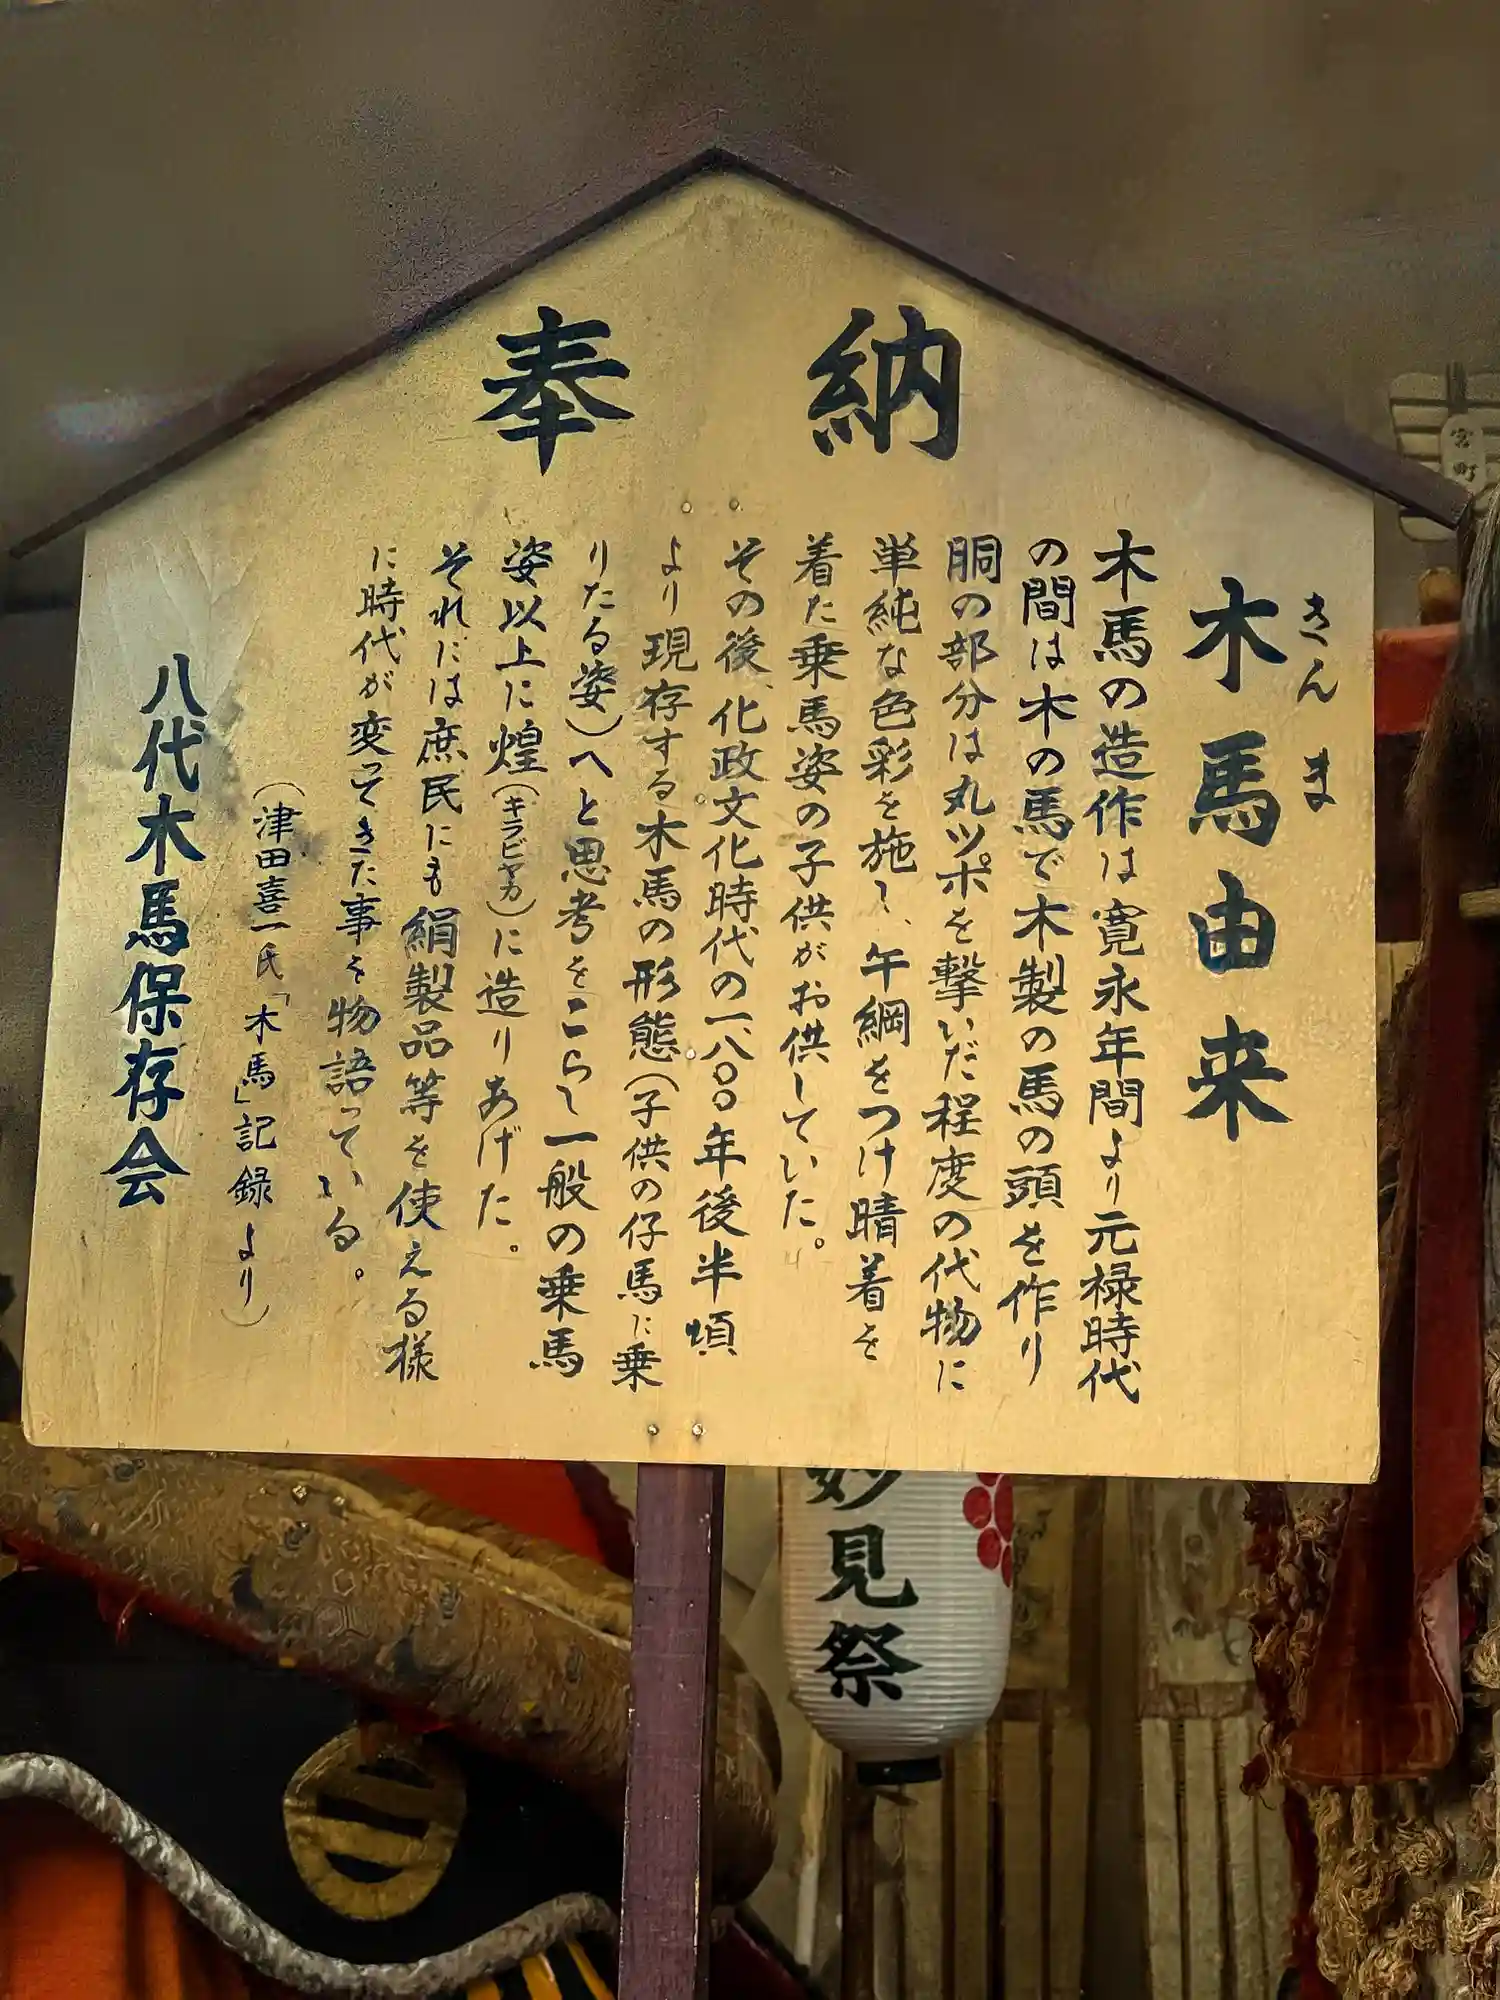 奉納
きんま
木馬由来
木馬の造作は寛永年間より元禄時代
の間は木の馬で木製の馬の頭を作り
胴の部分は丸ツポを撃いだ程度の代物に
単純な色彩を施し、午綱をつけ晴着を
着た乗馬姿の子供がお供していた。
その後、化政文化時代の一八〇〇年後半頃
より現存する木馬の形態(子供の仔馬に乗
りたる姿)へと思考をこらし一般の乗馬
姿以上に煌(キラビヤカ)に造りあげた。
それには庶民にも絹製品等を使える様
に時代が変ってきた事を物語っている。
(津田喜一氏「木馬」記録より)
八代木馬保存会
妙見祭
宮町